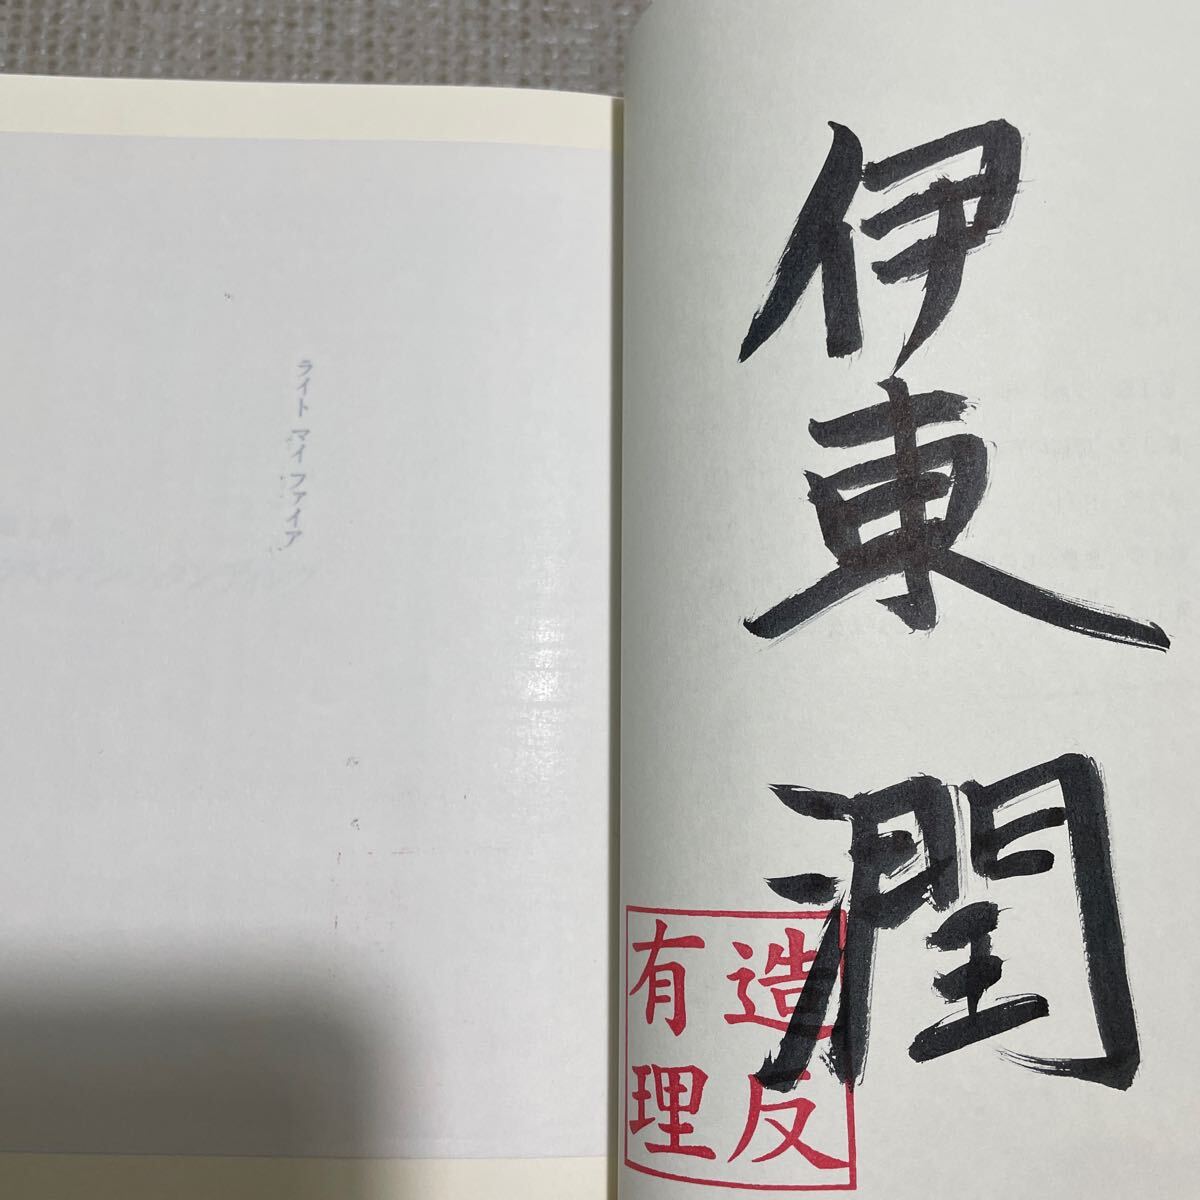 伊東潤
造反
有理
ライト マイ ファイア